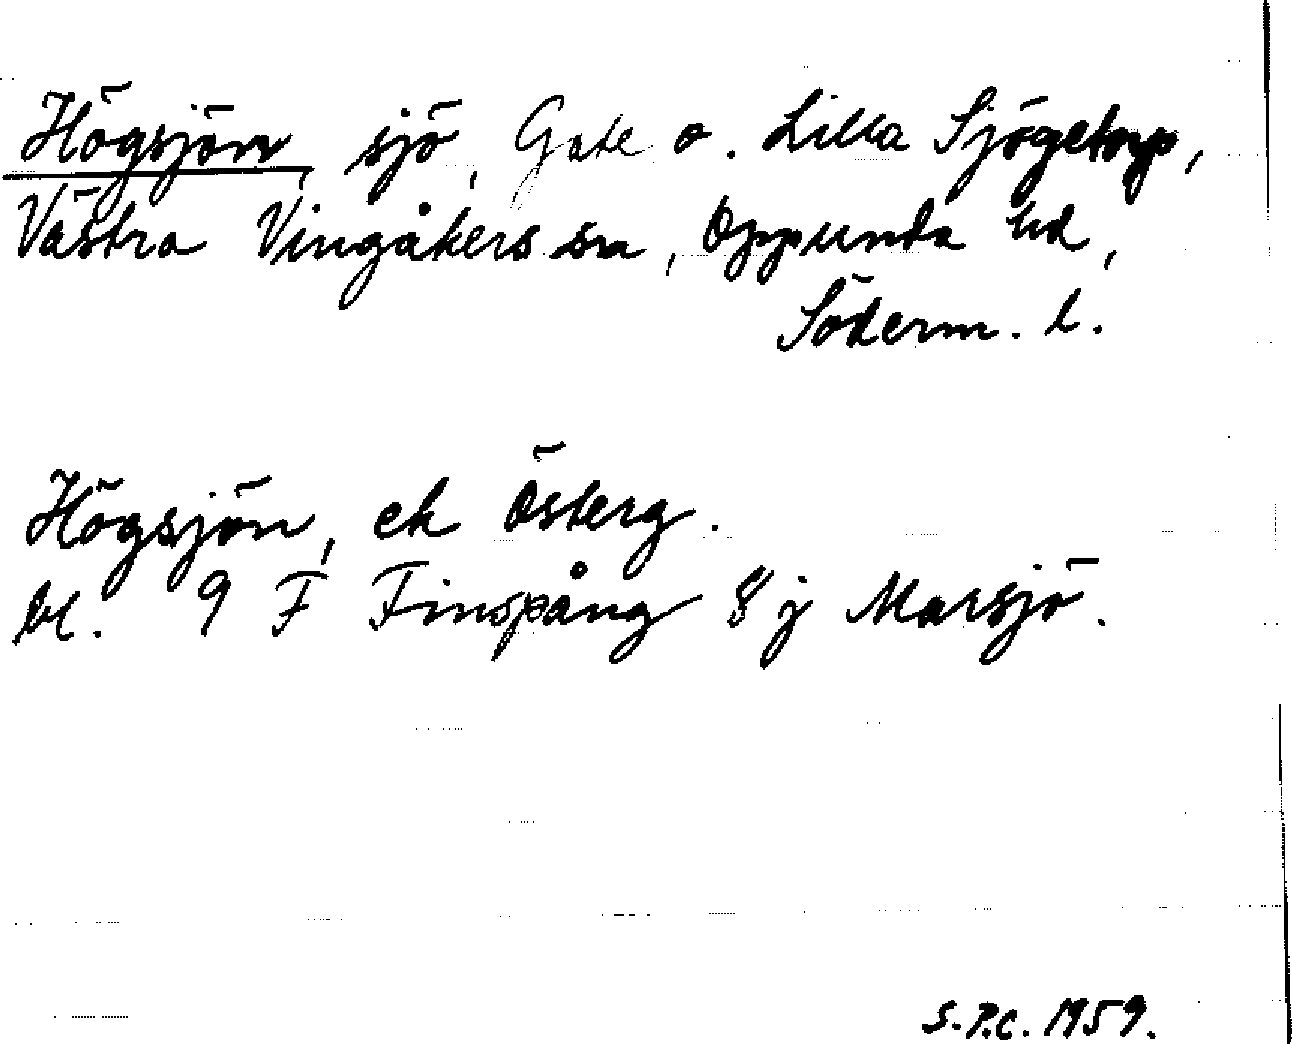 Högsjön, sjö, Gate o. Lilla Sjögetorp,
Västra Vingåkers sn, Oppunda hd,
Söderm. l.
Högsjön, ek Österg.
bl. 9 F Finspång 8 j Marsjö.
S.P.C. 1959.